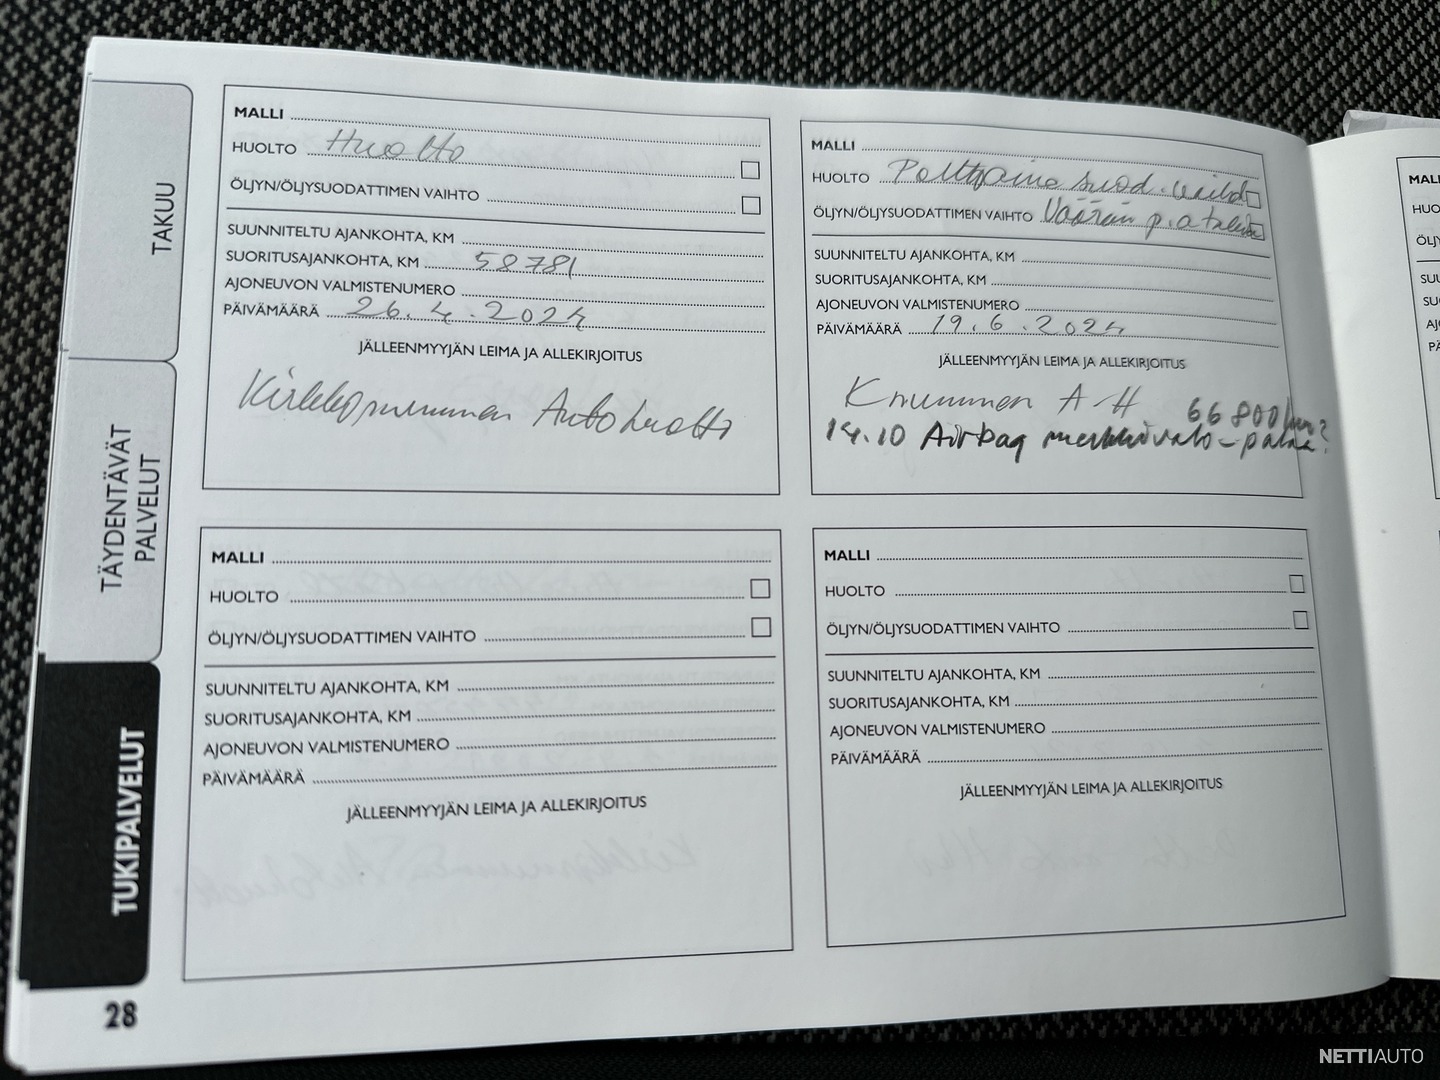 TAKUU
TÄYDENTÄVÄT
PALVELUT
TUKIPALVELUT
28
MALLI
HUOLTO Huolto
ÖLJYN/ÖLJYSUODATTIMEN VAIHTO
SUUNNITELTU AJANKOHTA, KM
SUORITUSAJANKOHTA, KM 58781
AJONEUVON VALMISTENUMERO
PÄIVÄMÄÄRÄ 26.4.2024
JÄLLEENMYYJÄN LEIMA JA ALLEKIRJOITUS
Kirkkonummen Autohuolto
MALLI
HUOLTO Polttoaine suod.
ÖLJYN/ÖLJYSUODATTIMEN VAIHTO Väärän p.a
SUUNNITELTU AJANKOHTA, KM
SUORITUSAJANKOHTA, KM
AJONEUVON VALMISTENUMERO
PÄIVÄMÄÄRÄ 19.6.2024
JÄLLEENMYYJÄN LEIMA JA ALLEKIRJOITUS
Knummen A-H 66800km?
14.10 Airbag merkkivalo-palaa.
MALLI
HUOLTO
ÖLJYN/ÖLJYSUODATTIMEN VAIHTO
SUUNNITELTU AJANKOHTA, KM
SUORITUSAJANKOHTA, KM
AJONEUVON VALMISTENUMERO
PÄIVÄMÄÄRÄ
JÄLLEENMYYJÄN LEIMA JA ALLEKIRJOITUS
MALLI
HUOLTO
ÖLJYN/ÖLJYSUODATTIMEN VAIHTO
SUUNNITELTU AJANKOHTA, KM
SUORITUSAJANKOHTA, KM
AJONEUVON VALMISTENUMERO
PÄIVÄMÄÄRÄ
JÄLLEENMYYJÄN LEIMA JA ALLEKIRJOITUS
NETTIAUTO